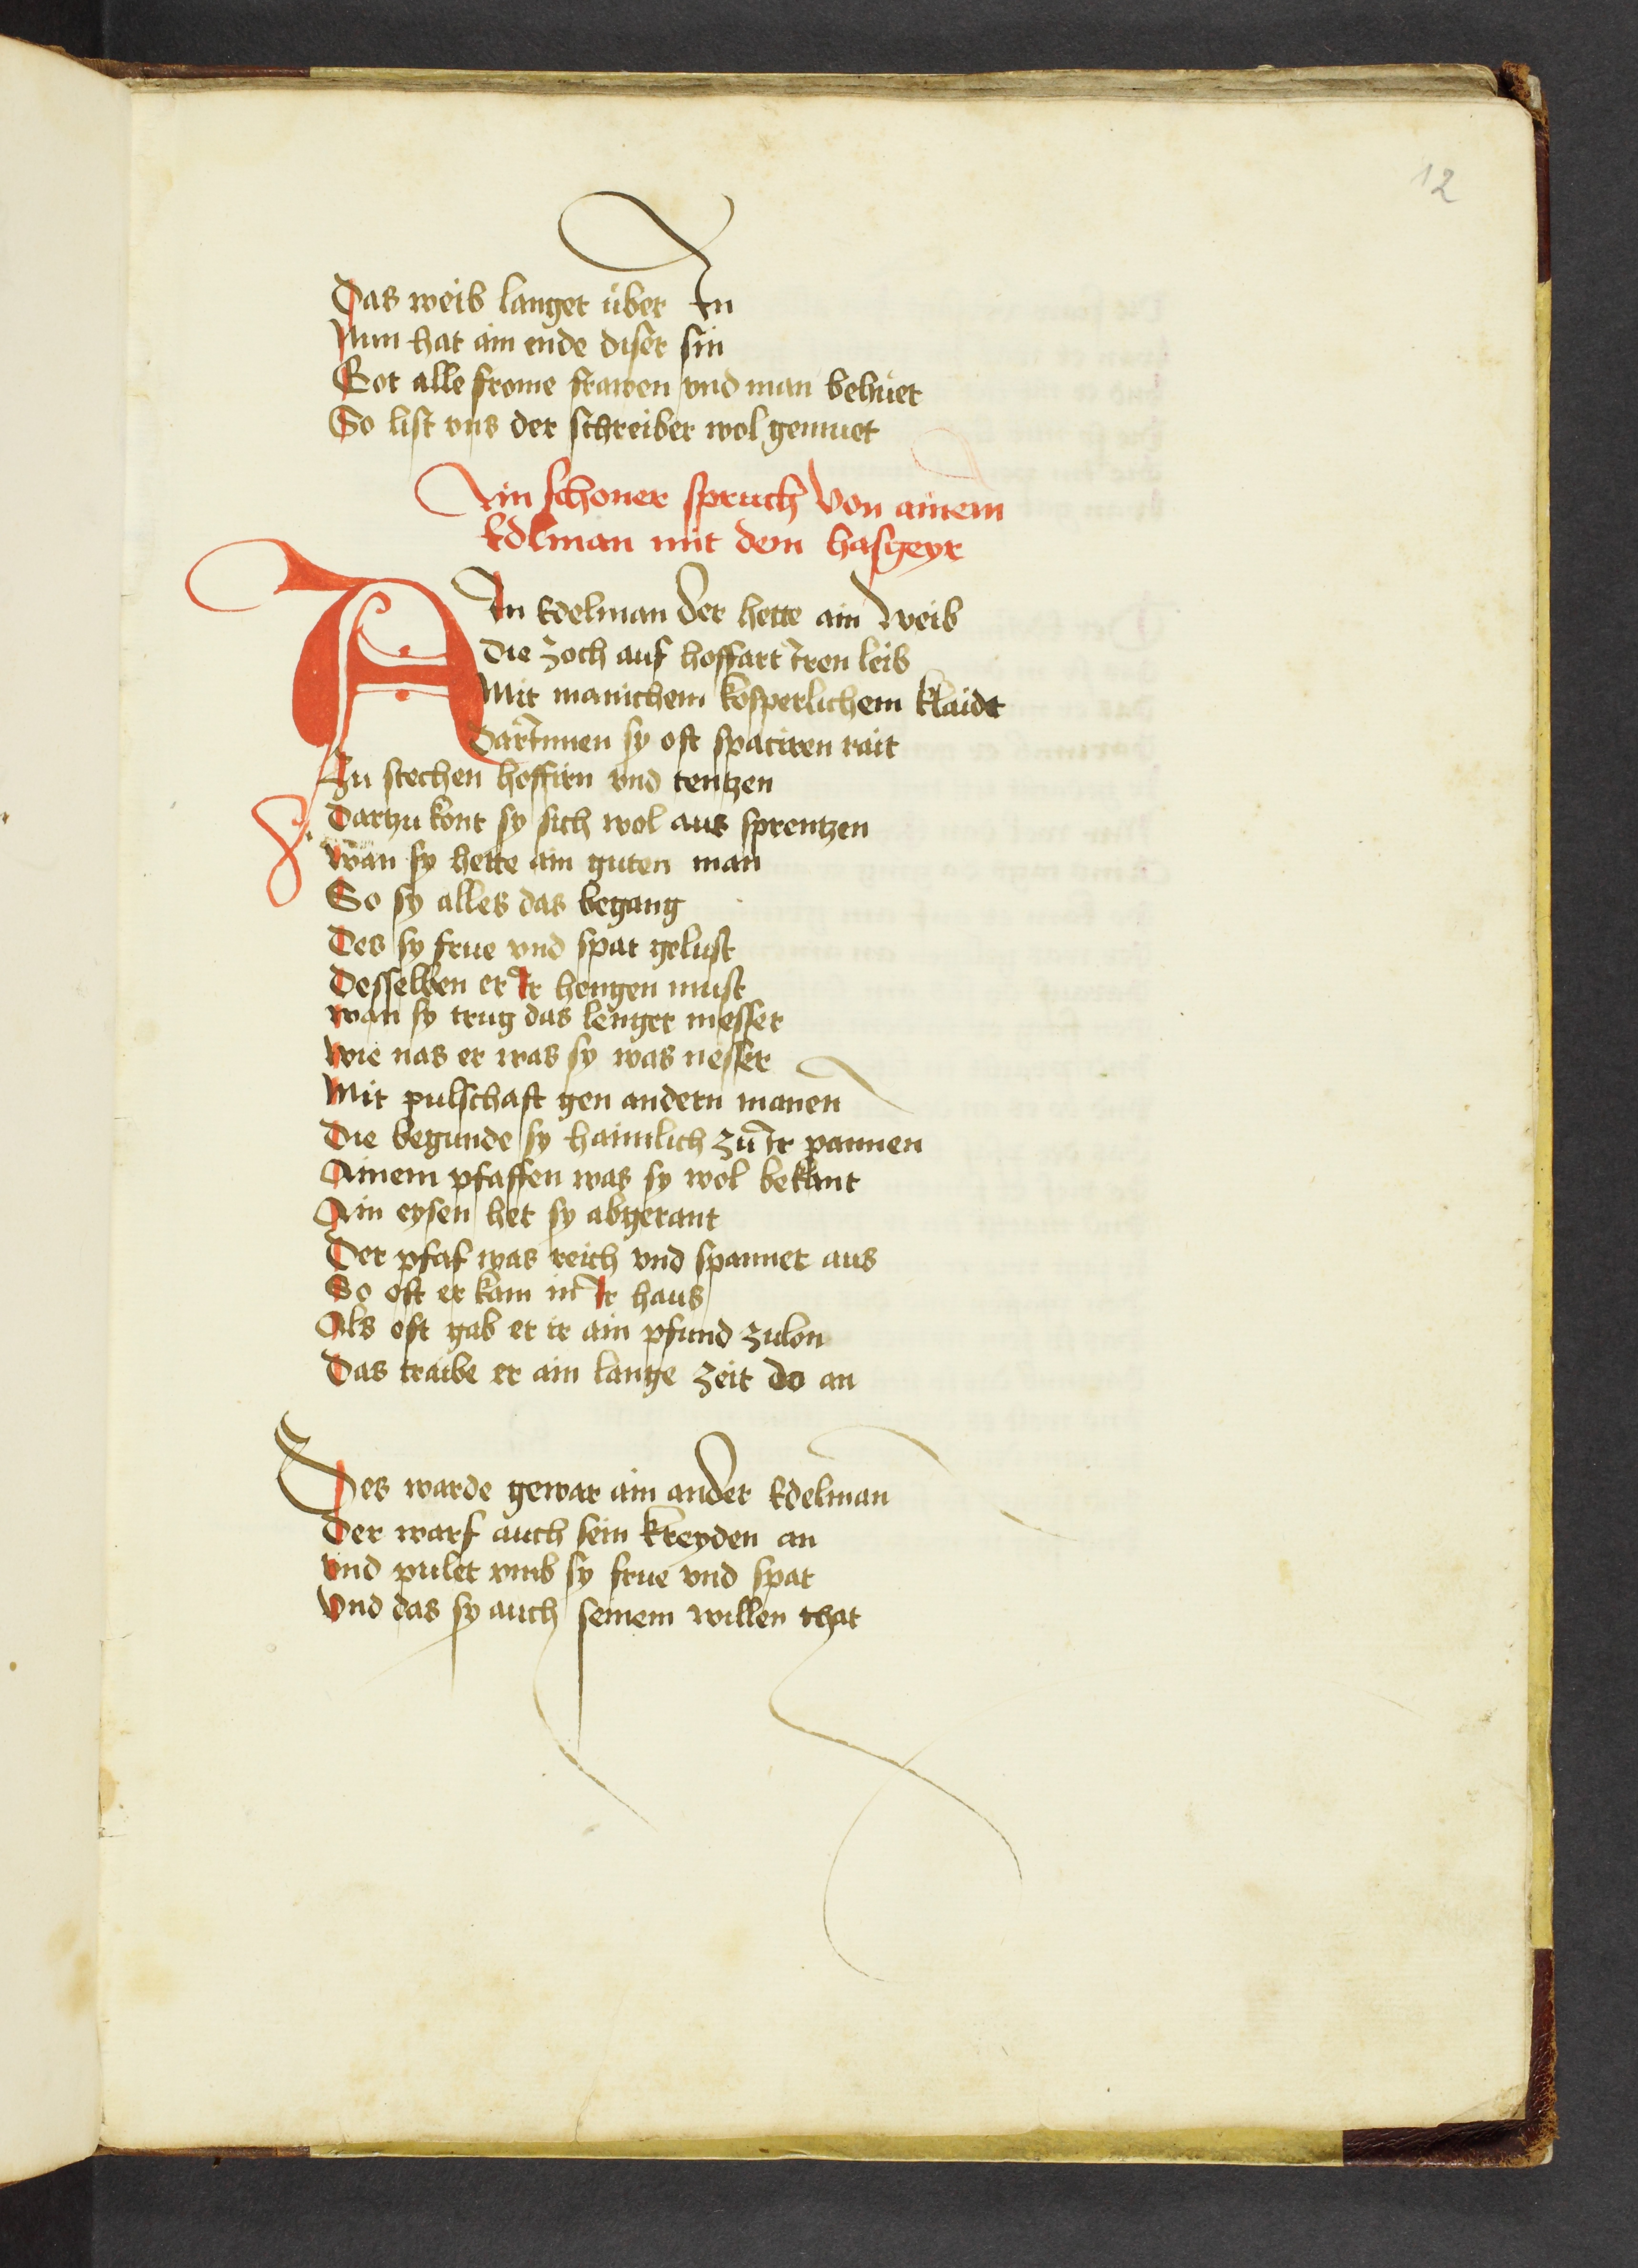 12
Das weib langet über In
Nun hat ain ende diser sin
Got alle frome frawen vnd man behüet
So list vns der schreiber wol gemuet
Ain schoner spruch von ainem
Edlman mit dem hasgeyr
AIn Edelman der hette ain weib
Die zoch auf hoffart Iren leib
Mit manichem kosperlichem klaidt
DarInnen sy oft spaciren rait
Zu stechen hoffirn vnd tentzen
Dartzu kont sy sich wol aus sprentzen
wan sy hette ain guten man
So sy alles das begang
Des sy frue vnd spat gelust
Desselben er Ir hengen must
wan sy trug das lenger messer
wie nas er was sy was nesser
Mit pulschaft gen andern manen
Die begunde sy haimlich zu Ir pannen
Ainem pfaffen was sy wol bekant
Ain eysen het sy abgerant
Der pfaf was reich vnd spannet aus
So oft er kam in Ir haus
Als oft gab er ir ain pfund zulon
Das traibe er ain lange zeit do an
Des warde gewar ain ander Edelman
Der warf auch sein kreyden an
vnd pulet vmb sy frue vnd spat
Vnd das sy auch seinem willen that